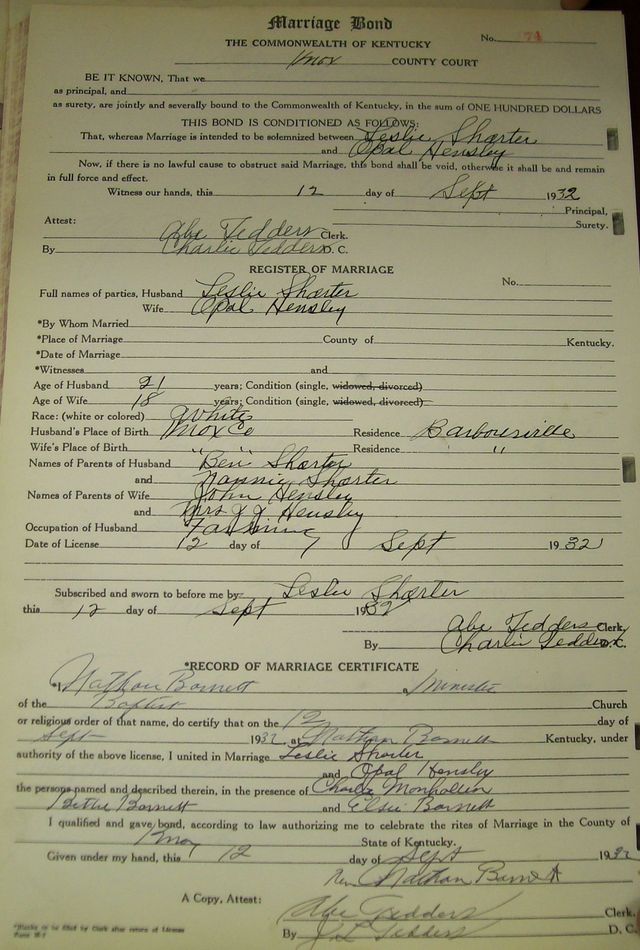 Marriage Bond
THE COMMONWEALTH OF KENTUCKY No. 74
Knox COUNTY COURT
BE IT KNOWN, That we
as principal, and
as surety, are jointly and severally bound to the Commonwealth of Kentucky, in the sum of ONE HUNDRED DOLLARS
THIS BOND IS CONDITIONED AS FOLLOWS:
That, whereas Marriage is intended to be solemnized between Leslie Shorter
and Opal Hensley
Now, if there is no lawful cause to obstruct said Marriage, this bond shall be void, otherwise it shall be and remain
in full force and effect.
Witness our hands, this 12 day of Sept 1932
Principal,
Surety.
Attest:
Abe Tedders Clerk.
By Charlie Tedders D. C.
REGISTER OF MARRIAGE
No.
Full names of parties, Husband Leslie Shorter
Wife Opal Hensley
*By Whom Married
*Place of Marriage County of Kentucky.
*Date of Marriage
*Witnesses and
Age of Husband 21 years; Condition (single, widowed, divorced)
Age of Wife 18 years; Condition (single, widowed, divorced)
Race: (white or colored) White
Husband's Place of Birth Knox Co Residence Barbourville
Wife's Place of Birth " " Residence "
Names of Parents of Husband Ben Shorter
and Nannie Shorter
Names of Parents of Wife John Hensley
and Mrs J J Hensley
Occupation of Husband Farming
Date of License 12 day of Sept 1932
Subscribed and sworn to before me by Leslie Shorter
this 12 day of Sept 1932
Abe Tedders Clerk.
By Charlie Tedders D.C.
*RECORD OF MARRIAGE CERTIFICATE
*I Nathan Barnett a Minister
of the Baptist Church
or religious order of that name, do certify that on the 12 day of
Sept 1932, at Nathan Barnett Kentucky, under
authority of the above license, I united in Marriage Leslie Shorter
and Opal Hensley
the persons named and described therein, in the presence of Charlie
Barnett and Elsie Barnett
I qualified and gave bond, according to law authorizing me to celebrate the rites of Marriage in the County of
Knox State of Kentucky.
Given under my hand, this 12 day of Sept 1932
Rev Nathan Barnett
A Copy, Attest:
Abe Tedders Clerk.
By J L Tedders D. C.
*Blanks to be filled by Clerk after return of License